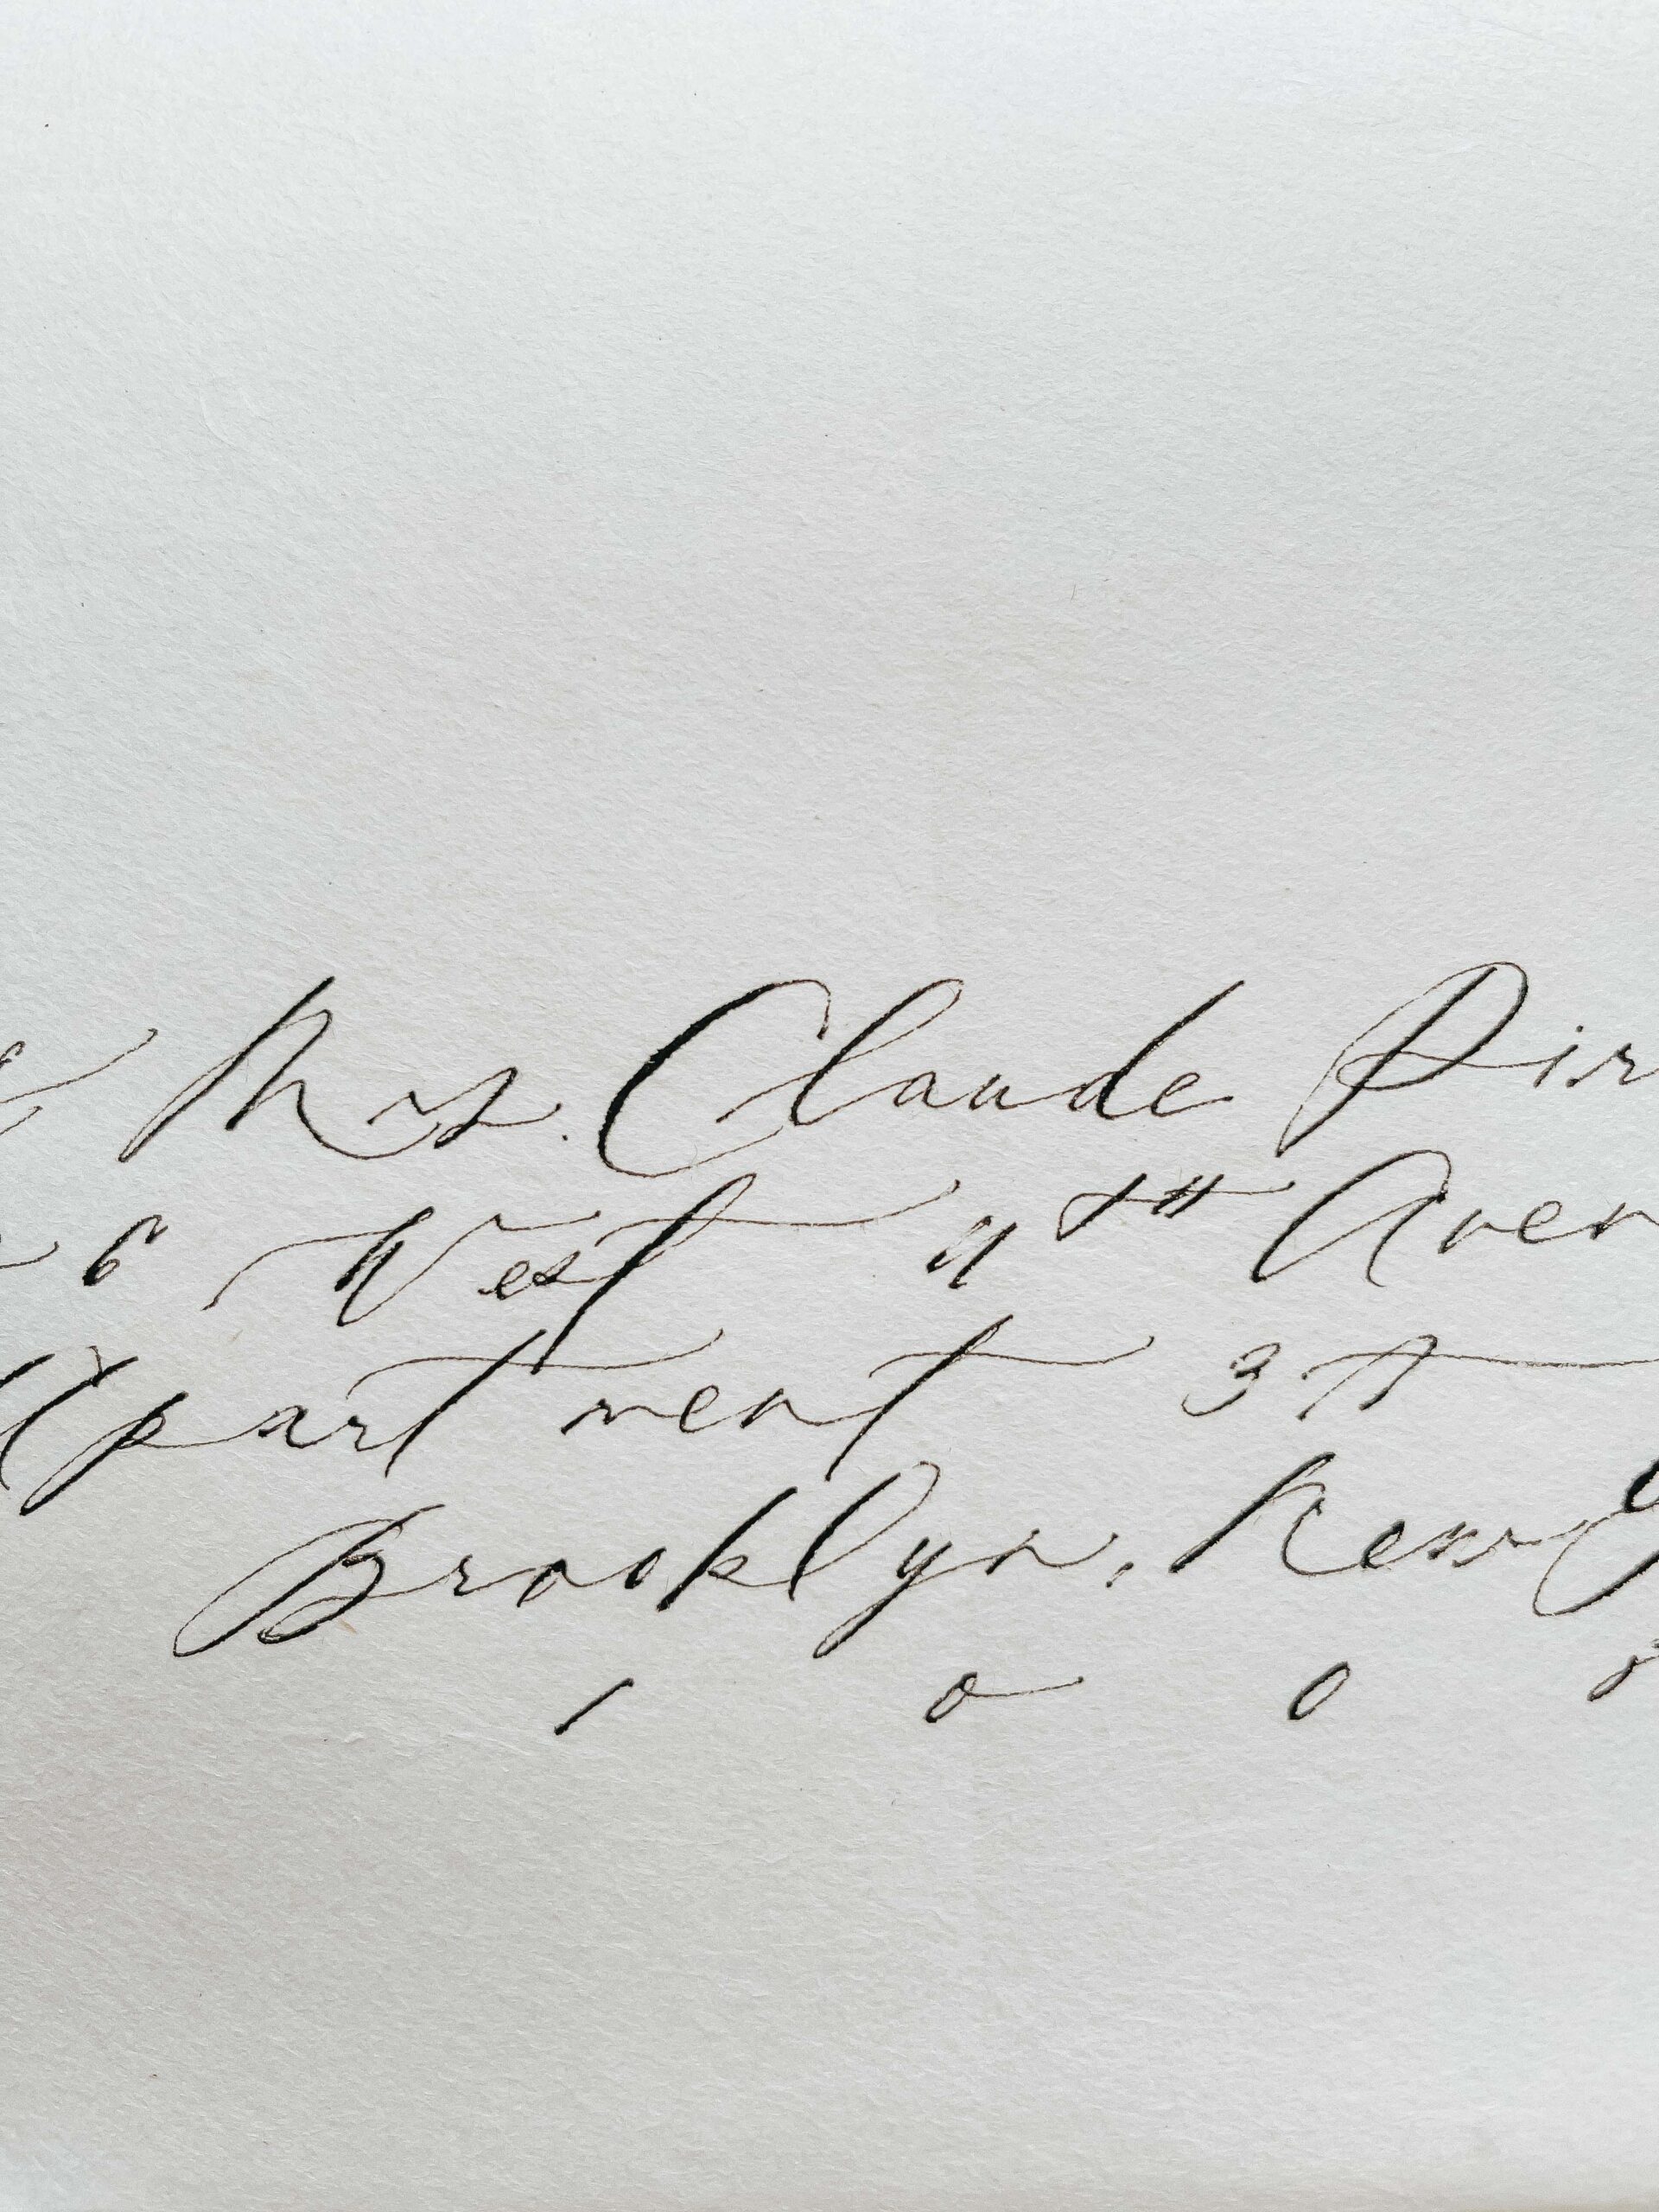 & Mrs. Claude Pir
6 West 4th Aven
Apartment 37
Brooklyn, New Y
1 0 0